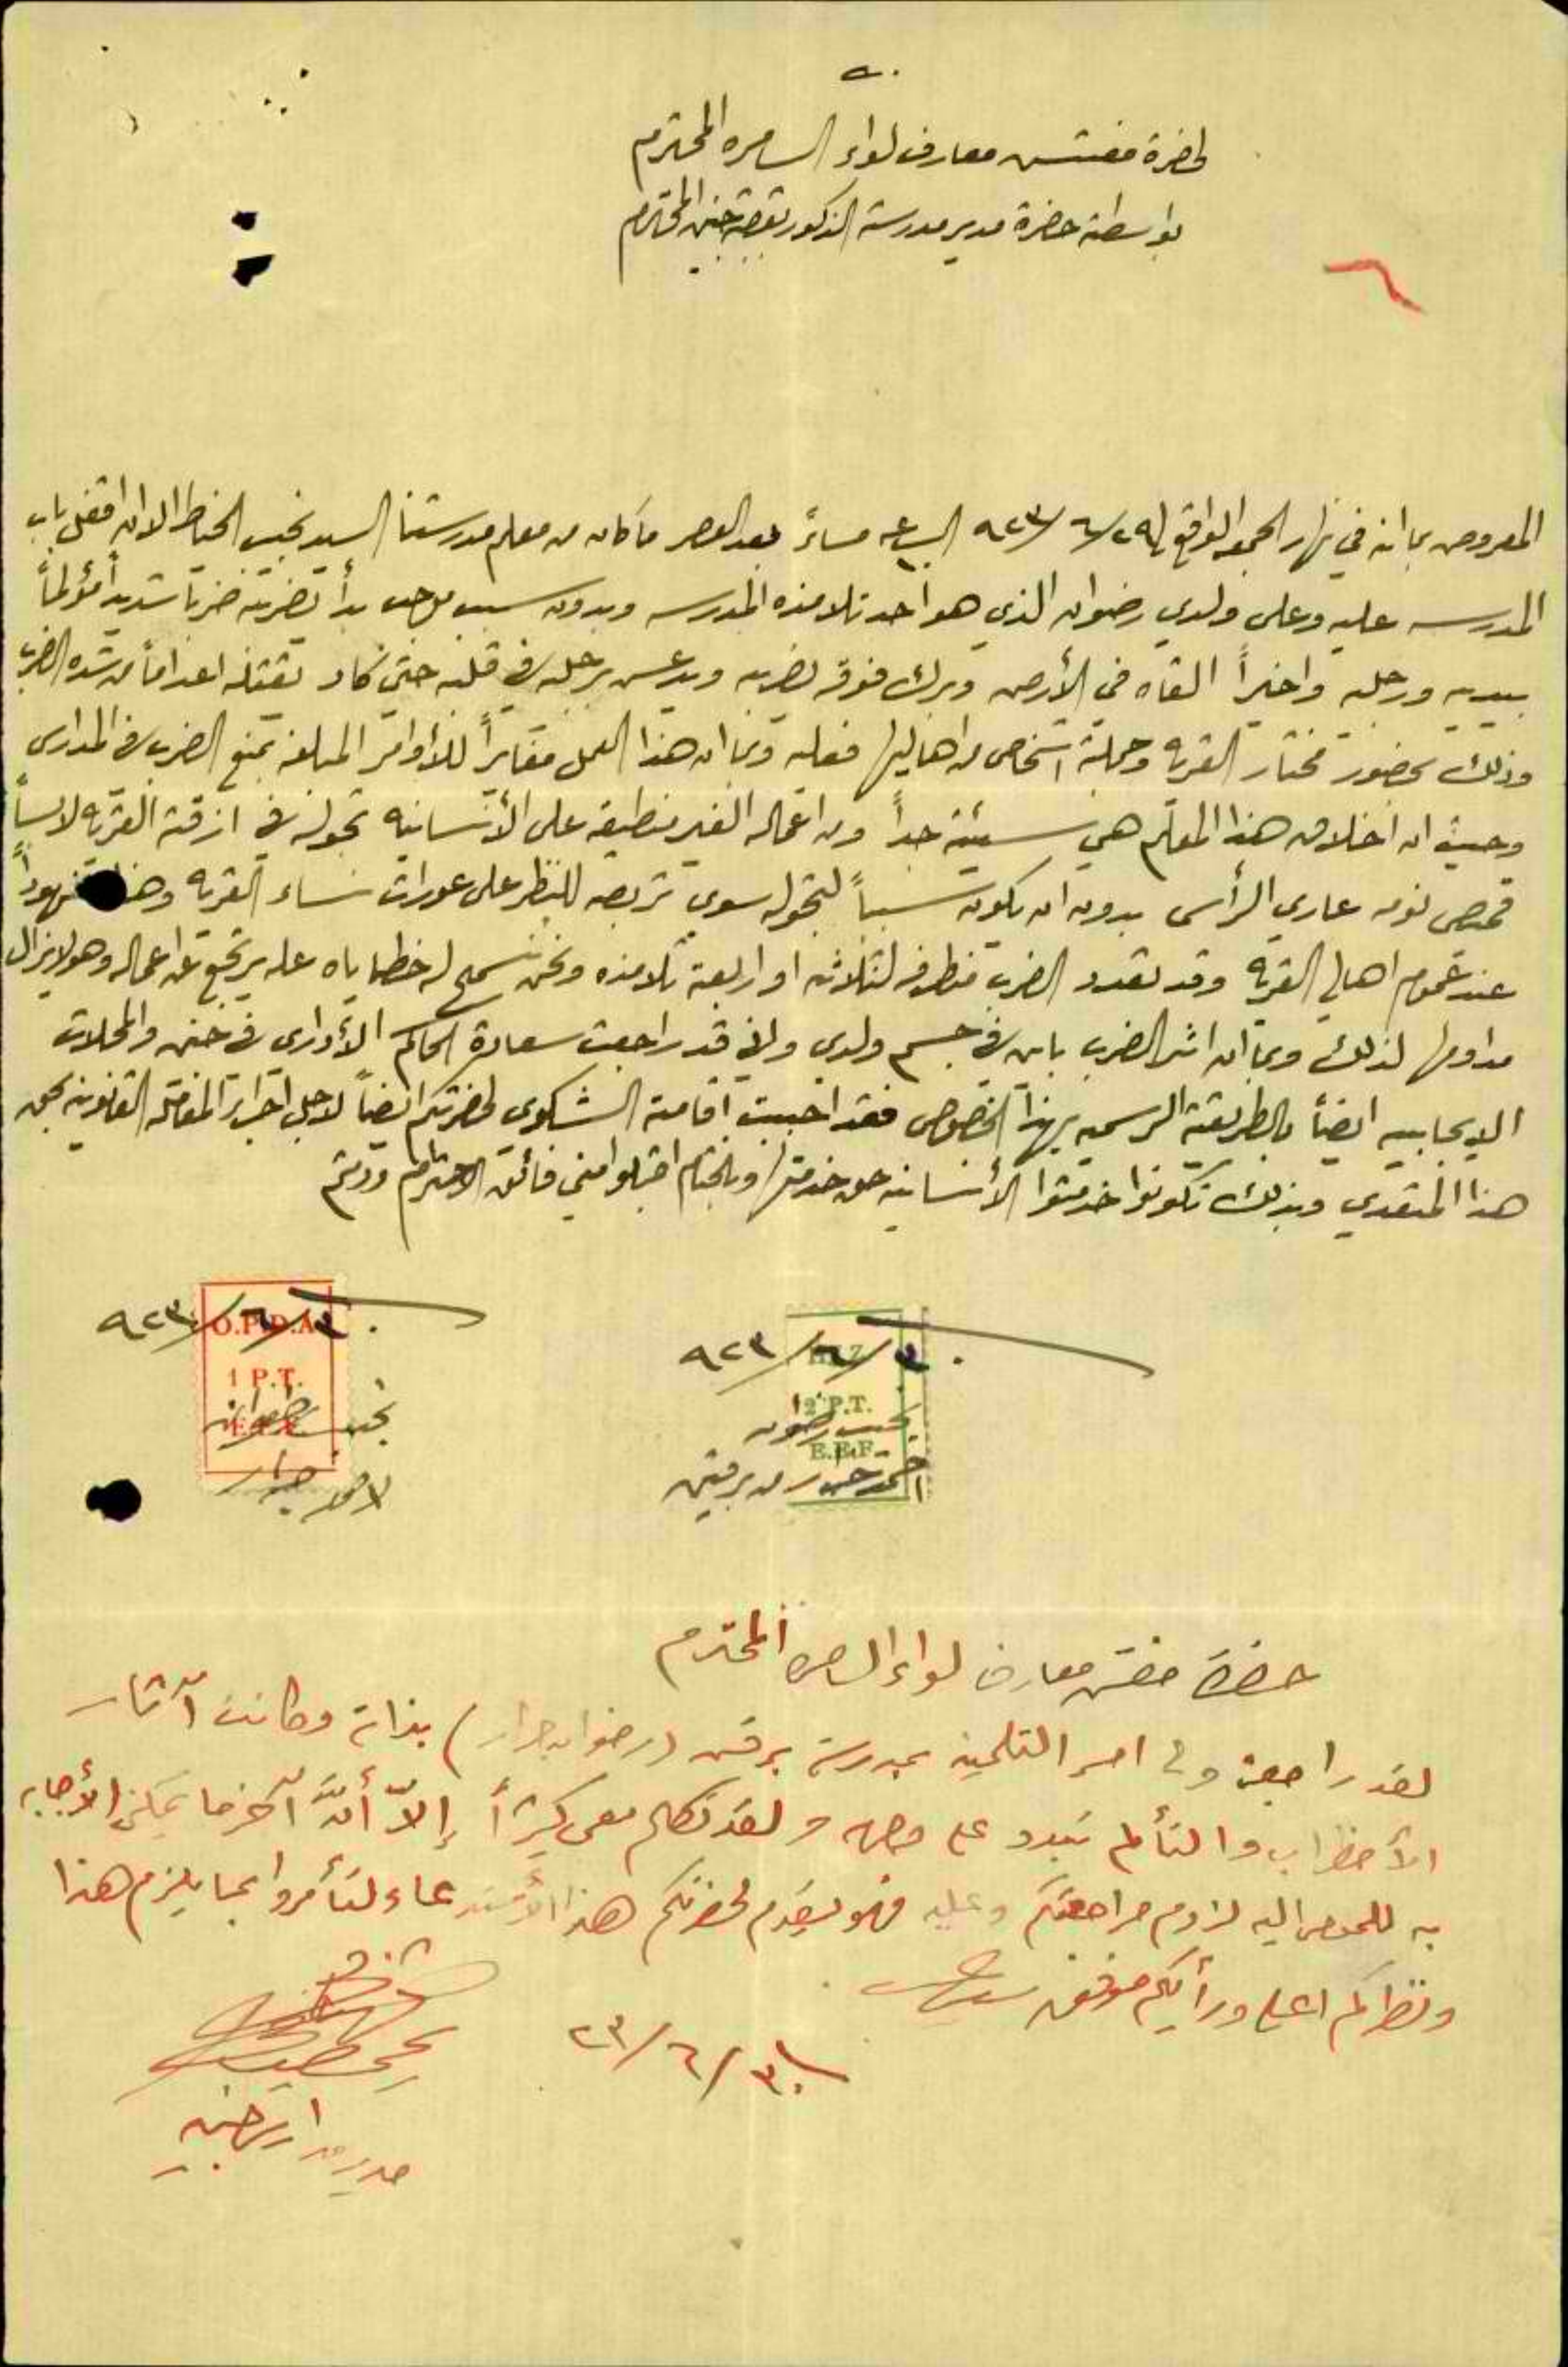 لحضرة مفتش معارف لواء السامره المحترم
بواسطة حضرة مدير مدرسة الذكور بقصبة جنين المحترم
المعروض بما انه في نهار الجمعه الواقع في ٢٩/٦/٩٢٣ الساعه مساءً بعد العصر ما كان من معلم مدرستنا السيد نجيب الخياط الا ان اقفل باب
المدرسه عليه وعلى ولدي رضوان الذي هو احد تلامذه المدرسه وبدون سبب موجب بدأ بضربه ضرباً شديداً مؤلماً
بيديه ورجليه واخيراً القاه في الأرض وبرك فوقه يضربه ويدعس برجليه في قلبه حتى كاد يقتله اعداماً من شده الضرب
وذلك بحضور مختار القريه وجملة اشخاص من اهاليها فعليه وبما ان هذا العمل مغايراً للأوامر المبلغه بمنع الضرب في المدارس
وحيث ان اخلاق هذا المعلم هي سيئة جداً ومن اعماله الغير منطبقه على الأنسانيه تجوله في ازقة القريه لابساً
قميص نومه عاري الرأس بدون ان يكون سبباً لتجوله سوى تربصه للنظر على عورات نساء القريه وهذا مشهوداً
عند عموم اهالي القريه وقد تعدد الضرب منطرفه لثلاثه او اربعة تلامذه ونحن نسمح له خطاياه عله يرتجع عن اعماله وهو لا يزال
مداوماً لذلك وبما ان اثر الضرب باين في جسم ولدي واني قد راجعت سعادة الحاكم الأداري في جنين والمحلات
الايجابيه ايضاً بالطريقة الرسميه بهذا الخصوص فقد احببت اقامة الشكوى لحضرتكم ايضاً لاجل اجراء المعامله القانونيه بحق
هذا المتعدي وبذلك تكونوا خدمتوا الأنسانيه حق خدمتها وبالختام اقبلوا مني فائق الاحترام ودمتم
٣٠/٦/٩٢٣
O.P.D.A
1 P.T.
٣٠/٦/٩٢٣
P.T.
E.E.F.
احمد جرار من برقين
حضرة مفتش معارف لواء السامره المحترم
لقد راجعني ولي امر التلميذ بمدرسة برقين (رضوان جرار) بذاته وكانت آثار
الأضطراب والتألم تبدو على وجهه ولقد تكلم معي كثيراً إلاّ أنَّ آخر ما يمكنني الأجابه
به للمومى اليه لزوم مراجعتكم وعليه فهو يقدم لحضرتكم هذا الأستدعاء لتأمروا بما يلزم هذا
ونظركم اعلى ورأيكم موفق سيدي
٣٠/٦/٢٣
مدير مدارس جنين